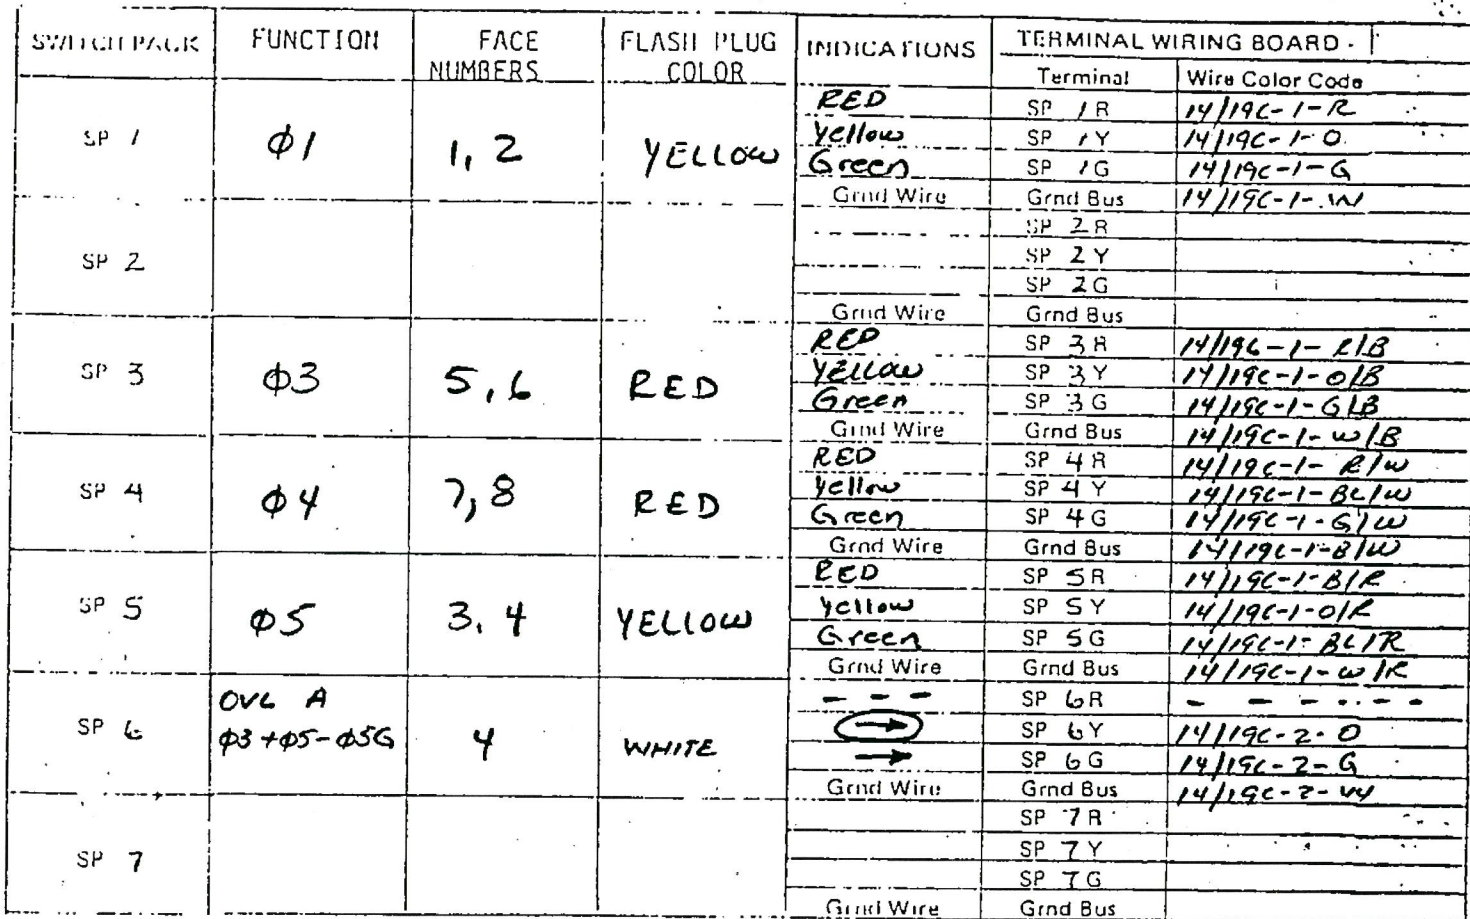 SWITCH PACK FUNCTION FACE NUMBERS FLASH PLUG COLOR INDICATIONS TERMINAL WIRING BOARD
Terminal Wire Color Code
SP 1 φ1 1, 2 YELLOW
RED SP 1 R 14/19C-1-R
Yellow SP 1 Y 14/19C-1-O
Green SP 1 G 14/19C-1-G
Grnd Wire Grnd Bus 14/19C-1-W
SP 2
SP 2 R
SP 2 Y
SP 2 G
Grnd Wire Grnd Bus
SP 3 φ3 5, 6 RED
RED SP 3 R 14/19C-1-R/B
YELLOW SP 3 Y 14/19C-1-O/B
Green SP 3 G 14/19C-1-G/B
Grnd Wire Grnd Bus 14/19C-1-W/B
SP 4 φ4 7, 8 RED
RED SP 4 R 14/19C-1-R/W
Yellow SP 4 Y 14/19C-1-BL/W
Green SP 4 G 14/19C-1-G/W
Grnd Wire Grnd Bus 14/19C-1-B/W
SP 5 φ5 3, 4 YELLOW
RED SP 5 R 14/19C-1-B/R
Yellow SP 5 Y 14/19C-1-O/R
Green SP 5 G 14/19C-1-BL/R
Grnd Wire Grnd Bus 14/19C-1-W/R
SP 6 OVL A
φ3+φ5-φ5G 4 WHITE
- - - SP 6 R - - - - - -
→ SP 6 Y 14/19C-2-O
→ SP 6 G 14/19C-2-G
Grnd Wire Grnd Bus 14/19C-2-W
SP 7
SP 7 R
SP 7 Y
SP 7 G
Grnd Wire Grnd Bus